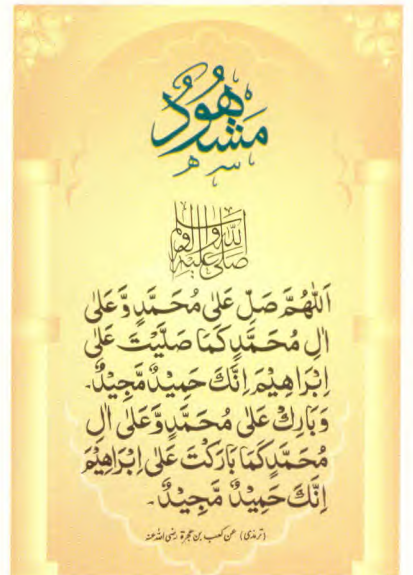 مَشْهُودٌ
صَلَّى اللّٰهُ عَلَيْهِ وَاٰلِهٖ وَسَلَّمَ
اَللّٰهُمَّ صَلِّ عَلٰى مُحَمَّدٍ وَّعَلٰى
اٰلِ مُحَمَّدٍ كَمَا صَلَّيْتَ عَلٰى
اِبْرَاهِيْمَ اِنَّكَ حَمِيْدٌ مَّجِيْدٌ۔
وَبَارِكْ عَلٰى مُحَمَّدٍ وَّعَلٰى اٰلِ
مُحَمَّدٍ كَمَا بَارَكْتَ عَلٰى اِبْرَاهِيْمَ
اِنَّكَ حَمِيْدٌ مَّجِيْدٌ۔
(ترمذی) عن کعب بن عجرة رضی اللہ عنہ